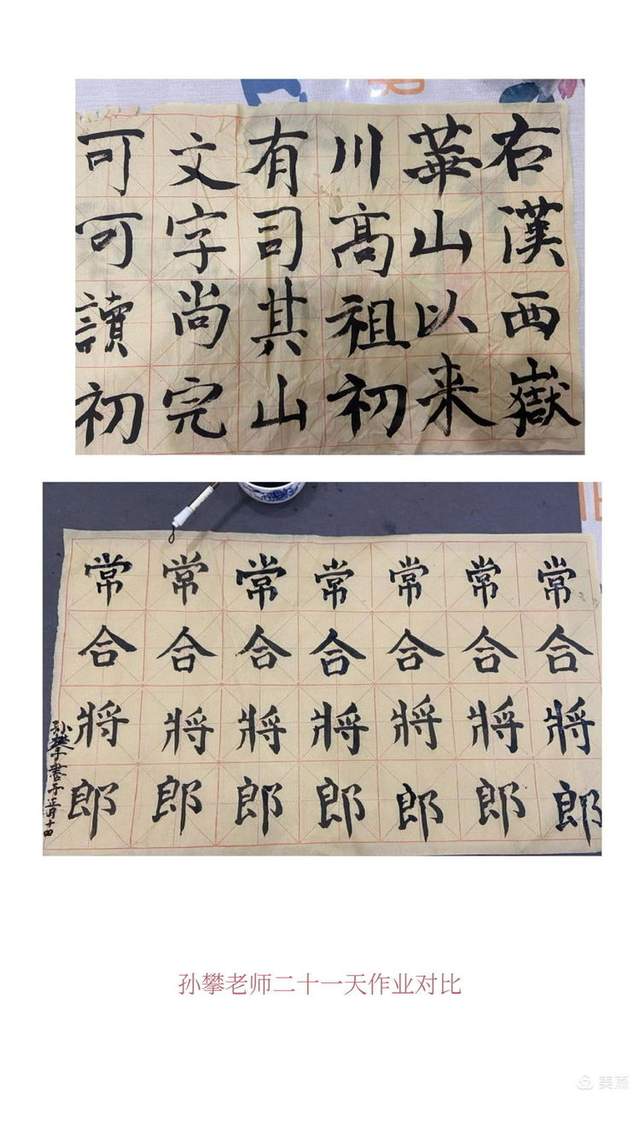 右漢西嶽
華山以来
川髙祖初
有司其山
文字尚完
可可讀初
常合將郎
常合將郎
常合將郎
常合將郎
常合將郎
常合將郎
常合將郎
孙攀于書于正月十四
孙攀老师二十一天作业对比
美篇